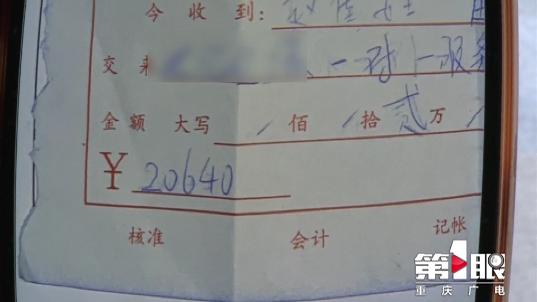 今收到:
交来 一对一服务
金额 大写 / 佰 / 拾 贰 万
¥ 20640
核准 会计 记帐
第1眼
重庆广电